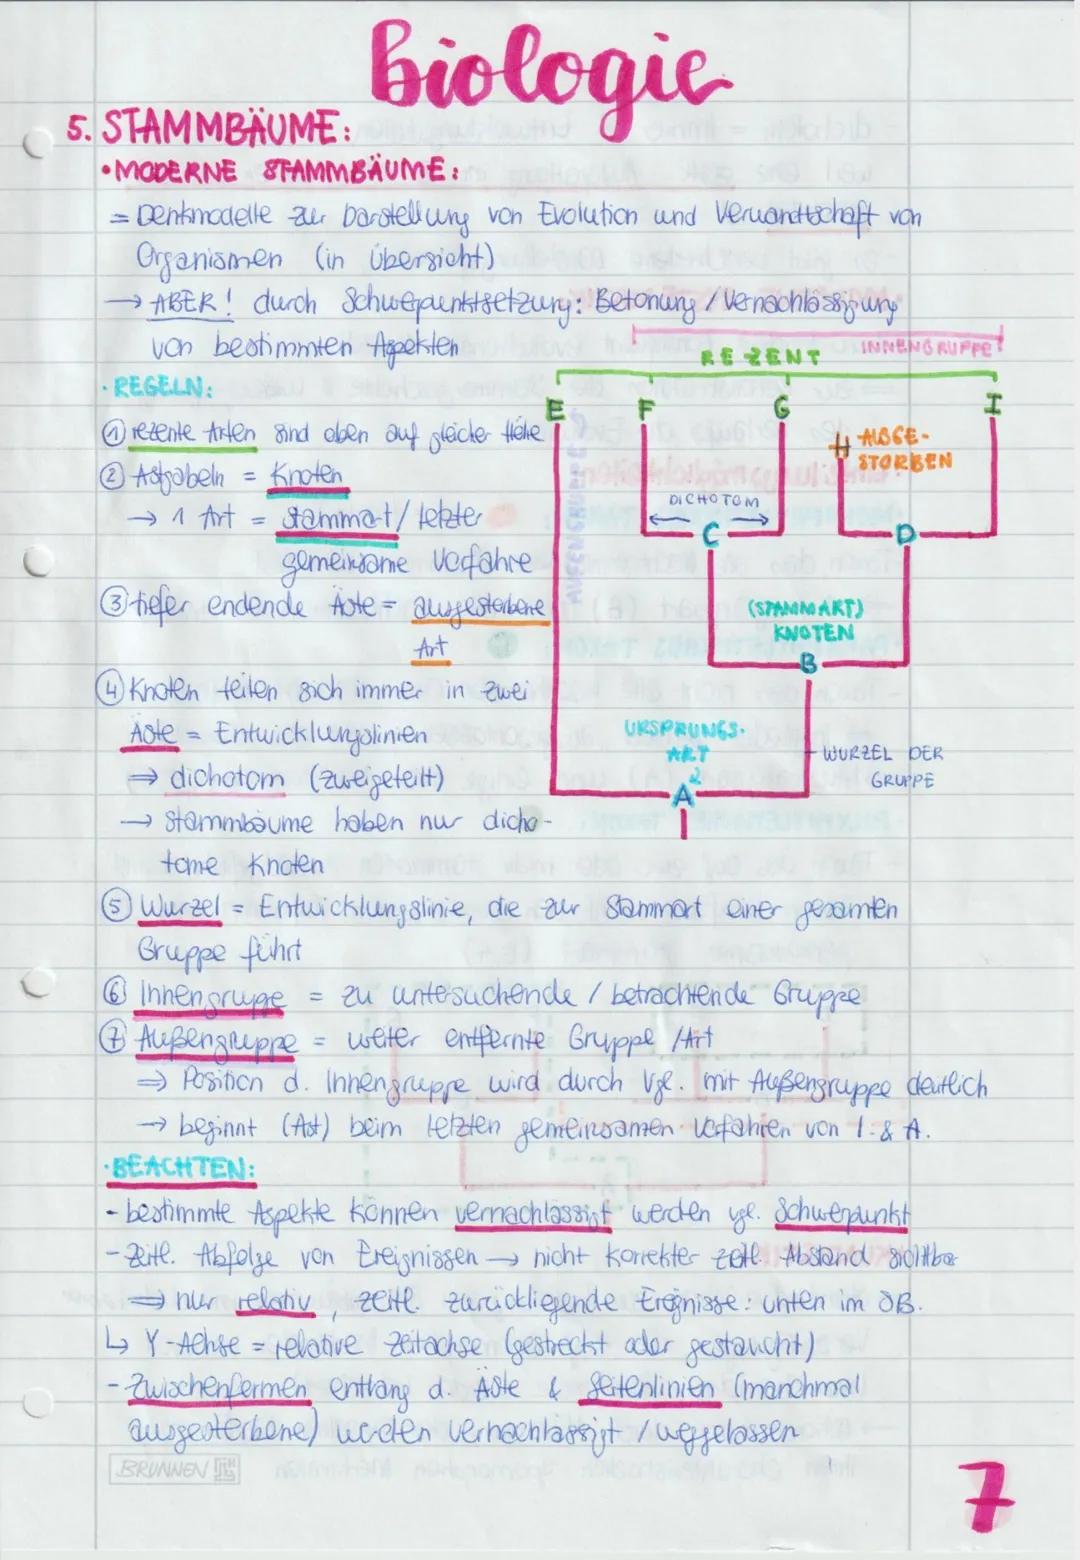 Biologie
5. STAMMBÄUME:
• MODERNE STAMMBÄUME:
= Denkmodelle zur Darstellung von Evolution und Verwandtschaft von
Organismen (in Übersicht)
→ ABER! durch Schwerpunktsetzung: Betonung / Vernachlässigung
von bestimmten Aspekten
· REGELN:
① rezente Arten sind oben auf gleicher Höhe
② Astgabeln = Knoten
→ 1 Art = Stammart / letzter
gemeinsame Vorfahre
③ tiefer endende Äste = ausgestorbene
Art
④ Knoten teilen sich immer in zwei
Äste = Entwicklungslinien
⇒ dichotom (zweigeteilt)
→ Stammbäume haben nur dicho-
tome Knoten
INNENGRUPPE
REZENT
E F G I
AUßENGRUPPE
AUSGE-
STORBEN
DICHOTOM
C D
(STAMMART)
KNOTEN
B
URSPRUNGS-
ART
WURZEL DER
GRUPPE
A
⑤ Wurzel = Entwicklungslinie, die zur Stammart einer gesamten
Gruppe führt
⑥ Innengruppe = zu untersuchende / betrachtende Gruppe
⑦ Außengruppe = weiter entfernte Gruppe / Art
⇒ Position d. Innengruppe wird durch Vgl. mit Außengruppe deutlich
→ beginnt (Ast) beim letzten gemeinsamen Vorfahren von I. & A.
· BEACHTEN:
- bestimmte Aspekte können vernachlässigt werden vgl. Schwerpunkt
- Zeitl. Abfolge von Ereignissen → nicht korrekter zeitl. Abstand sichtbar
⇒ nur relativ, zeitl. zurückliegende Ereignisse: unten im SB.
↳ Y-Achse = relative Zeitachse (gestreckt oder gestaucht)
- Zwischenformen entlang d. Äste & Seitenlinien (manchmal
ausgestorbene) werden vernachlässigt / weggelassen
BRUNNEN
7